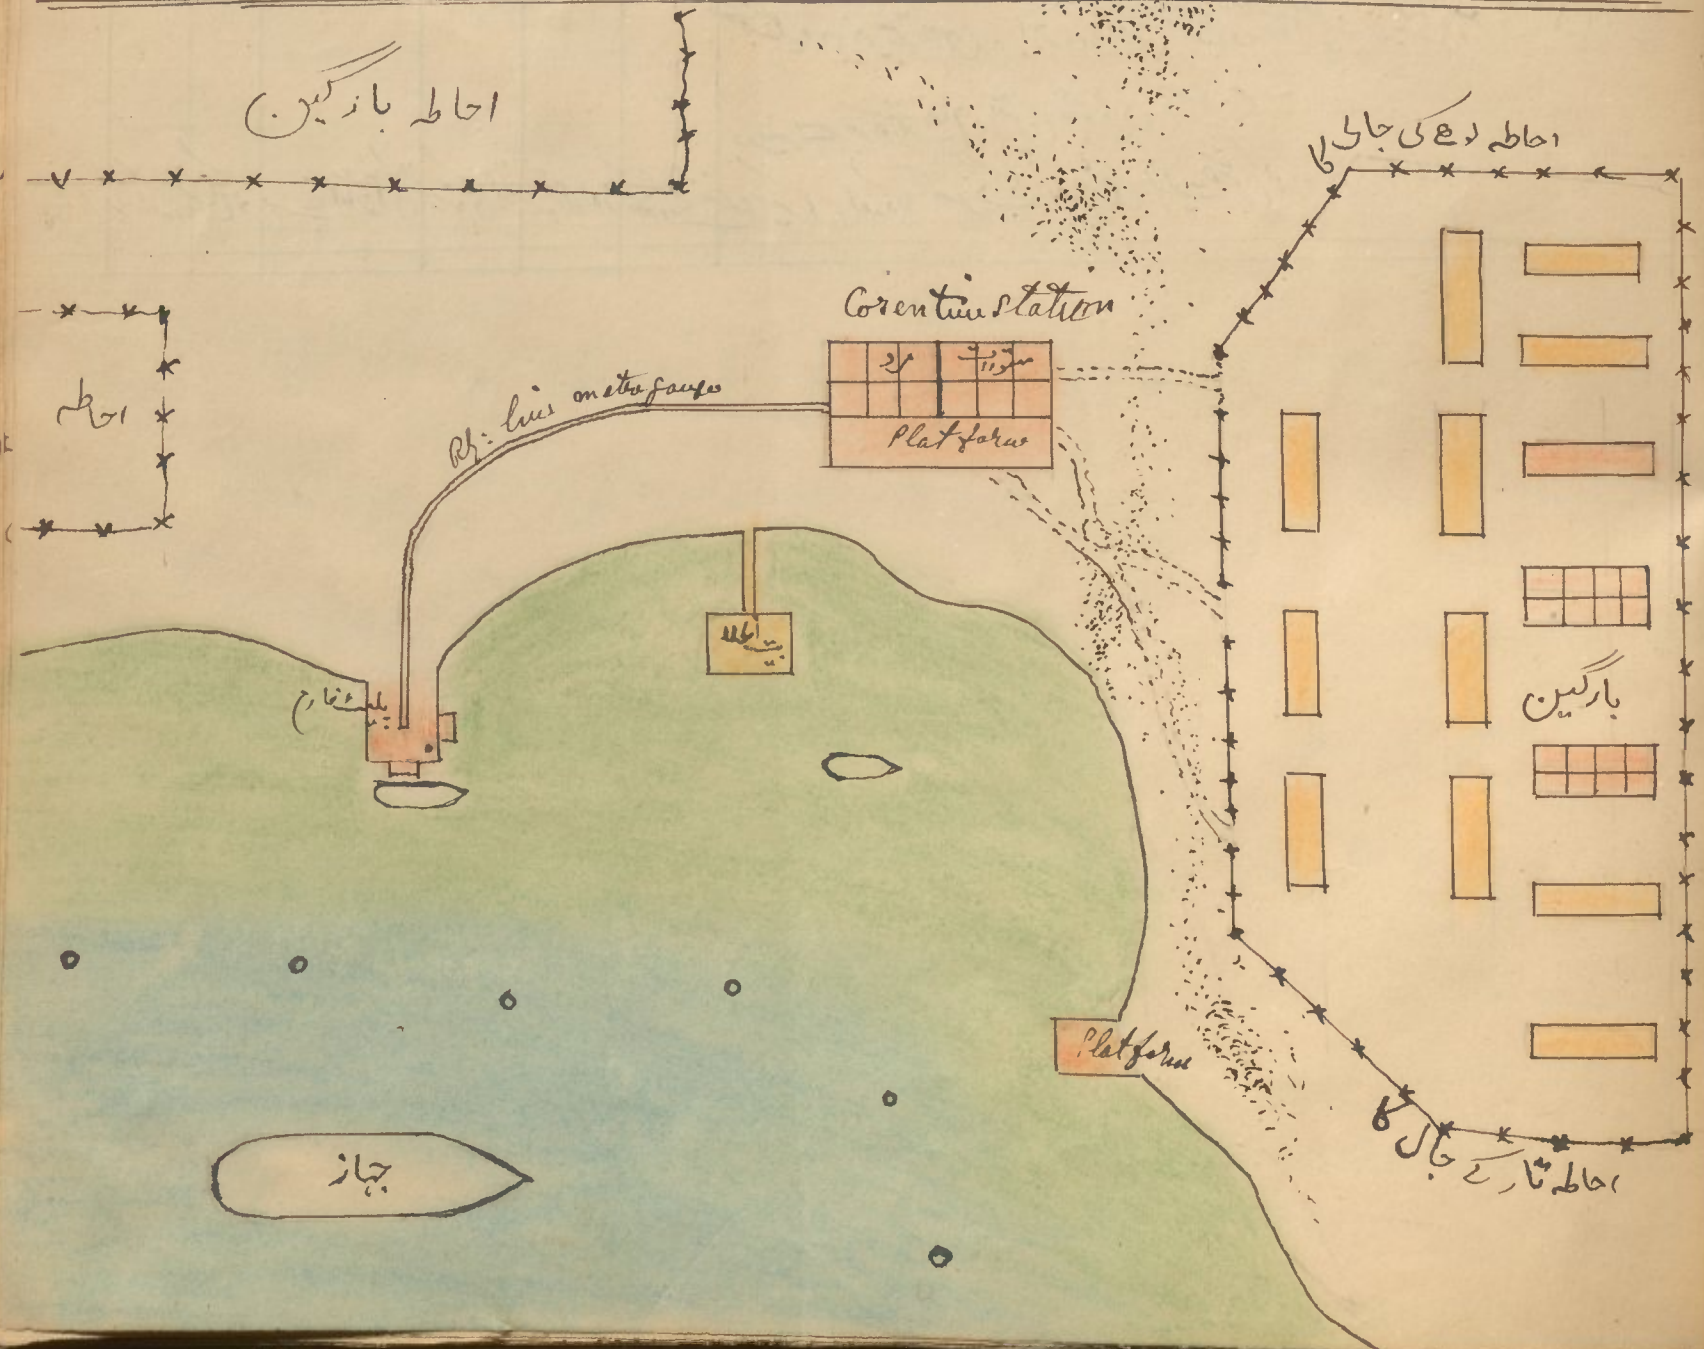 احاطہ بارگین
احاطہ لوھے کی جالی کا
Corentine station
مرد
مستورات
Rly: line metre gauge
Platform
احاطہ
بیت الخلا
پلیٹ فارم
بارگین
Platform
جہاز
احاطہ تار کے جال کا